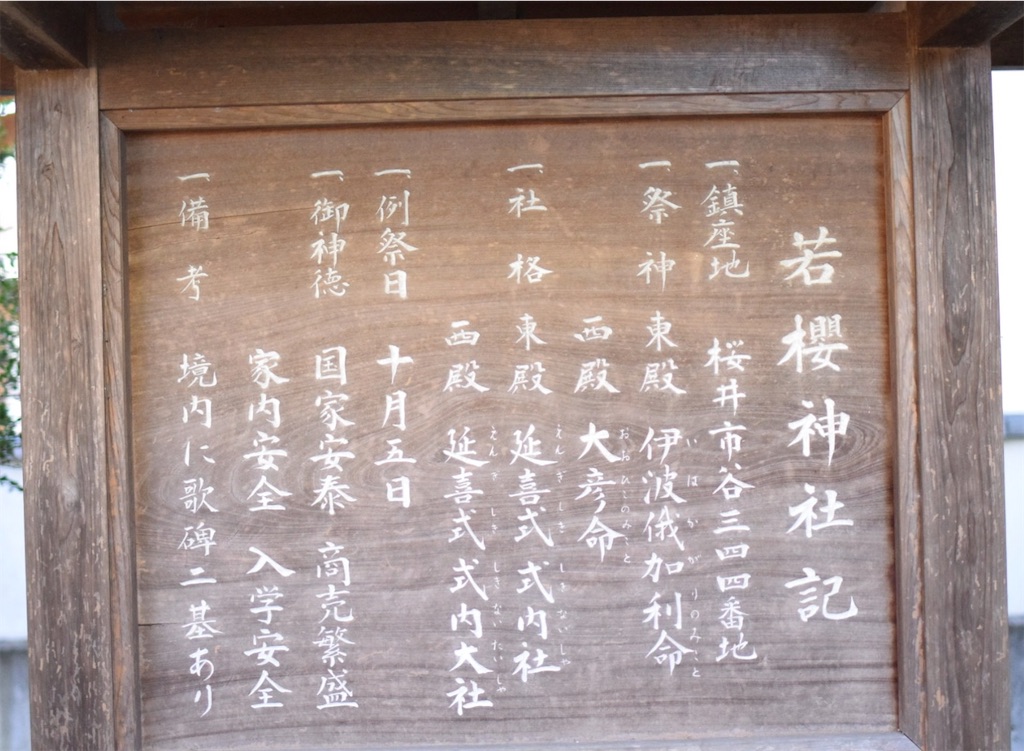 若櫻神社記
一、鎮座地 桜井市谷三四四番地
一、祭神 東殿 伊波俄加利命
いはがかりのみこと
西殿 大彦命
おおひこのみこと
一、社格 東殿 延喜式式内社
えんぎしき しきないしゃ
西殿 延喜式式内大社
えんぎしき しきないたいしゃ
一、例祭日 十月五日
一、御神徳 国家安泰 商売繁盛
家内安全 入学安全
一備考 境内に歌碑二基あり